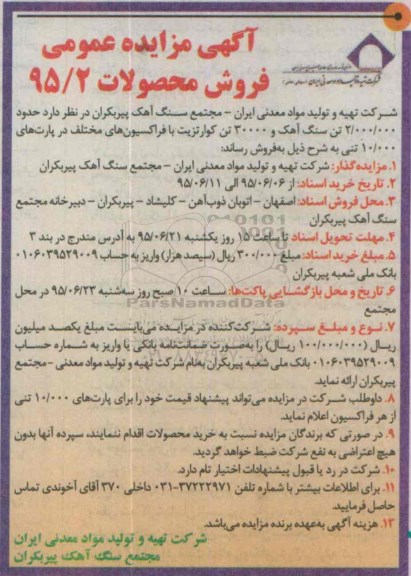 آگهی مزایده عمومی
فروش محصولات ۹۵/۲
شرکت تهیه و تولید مواد معدنی ایران - مجتمع سنگ آهک پیربکران در نظر دارد حدود
۲/۰۰۰/۰۰۰ تن سنگ آهک و ۳۰۰۰۰ تن کوارتزیت با فراکسیون‌های مختلف در پارت‌های
۱۰/۰۰۰ تنی به شرح ذیل به‌فروش رساند:
۱. مزایده‌گذار: شرکت تهیه و تولید مواد معدنی ایران - مجتمع سنگ آهک پیربکران
۲. تاریخ خرید اسناد: از ۹۵/۰۶/۰۶ الی ۹۵/۰۶/۱۱
۳. محل فروش اسناد: اصفهان - اتوبان ذوب‌آهن - کلیشاد - پیربکران - دبیرخانه مجتمع
سنگ آهک پیربکران
۴. مهلت تحویل اسناد تا ساعت ۱۵ روز یکشنبه ۹۵/۰۶/۲۱ به آدرس مندرج در بند ۳
۵. مبلغ خرید اسناد: مبلغ ۳۰۰/۰۰۰ ریال (سیصد هزار) واریز به حساب ۰۱۰۶۰۳۹۵۲۹۰۰۹
بانک ملی شعبه پیربکران
۶. تاریخ و محل بازگشایی پاکت‌ها: ساعت ۱۰ صبح روز سه‌شنبه ۹۵/۰۶/۲۳ در محل
مجتمع
۷. نوع و مبلغ سپرده: شرکت‌کننده در مزایده می‌بایست مبلغ یکصد میلیون
ریال (۱۰۰/۰۰۰/۰۰۰ ریال) را به‌صورت ضمانت‌نامه بانکی یا واریز به شماره حساب
۰۱۰۶۰۳۹۵۲۹۰۰۹ بانک ملی شعبه پیربکران به‌نام شرکت تهیه و تولید مواد معدنی - مجتمع
پیربکران ارائه نماید.
۸. داوطلب شرکت در مزایده می‌تواند پیشنهاد قیمت خود را برای پارت‌های ۱۰/۰۰۰ تنی
از هر فراکسیون اعلام نماید.
۹. در صورتی که برندگان مزایده نسبت به خرید محصولات اقدام ننمایند، سپرده آنها بدون
هیچ اعتراضی به نفع شرکت ضبط خواهد گردید.
۱۰. شرکت در رد یا قبول پیشنهادات اختیار تام دارد.
۱۱. برای اطلاعات بیشتر با شماره تلفن ۳۷۲۲۲۹۷۱-۰۳۱ داخلی ۳۷۰ آقای آخوندی تماس
حاصل فرمایید.
۱۲. هزینه آگهی به‌عهده برنده مزایده می‌باشد.
شرکت تهیه و تولید مواد معدنی ایران
مجتمع سنگ آهک پیربکران
ParsNamadData